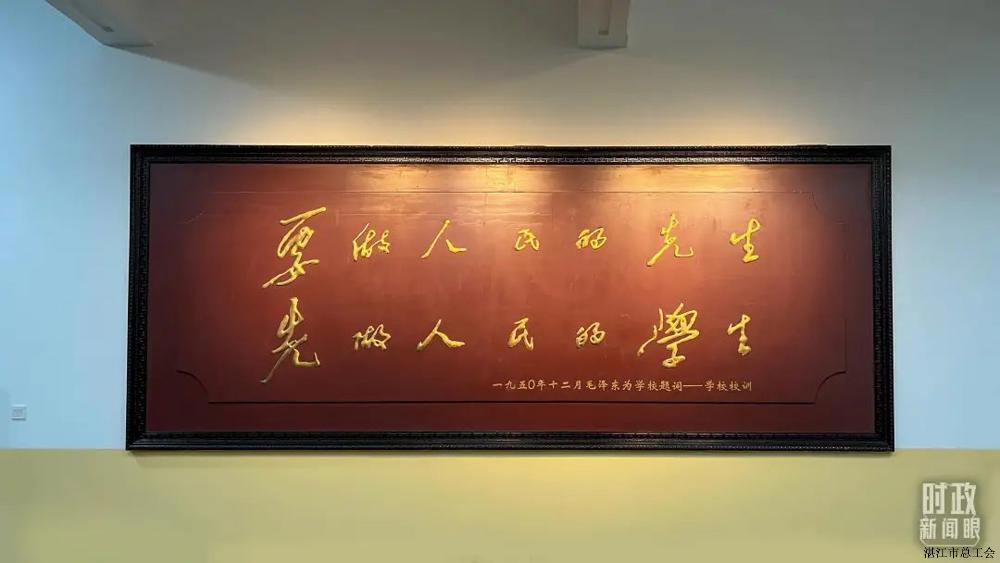 要做人民的先生
先做人民的學生
一九五〇年十二月毛泽东为学校题词——学校校训
时政
新闻眼
湛江市总工会